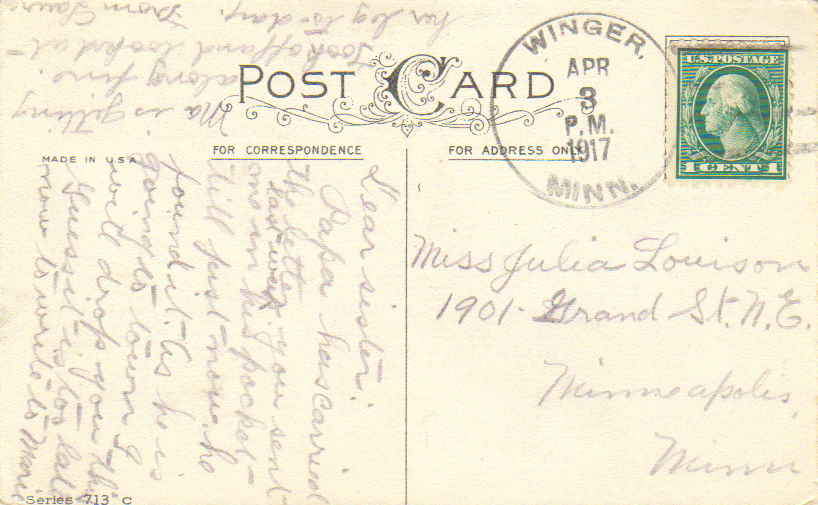 POST CARD
WINGER,
APR
3
P.M.
1917
MINN.
U.S. POSTAGE
1 CENT 1
FOR CORRESPONDENCE
FOR ADDRESS ONLY
MADE IN U.S.A.
Miss Julia Louison
1901- Grand St. N.E.
Minneapolis,
Minn
Dear sister:
Papa has carried
the letter you sent
last
one in his pocket-
till just now, he
found it. As he is
going to town I
will drop you this
Guess it is too late
now to write to Marie
Ma is getting
along fine.
Took off and looked at
her leg to-day.
From Laura
Series 713 C